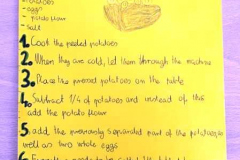 - potatoes
- eggs
- potato flour
- salt
1. Cook the peeled potatoes
2. When they are cold, let them through the machine
3. Place the pressed potatoes on the table
4. Subtract 1/4 of potatoes and instead of this
add the potato flour
5. add the previously separated part of the potatoes, as
well as two whole eggs